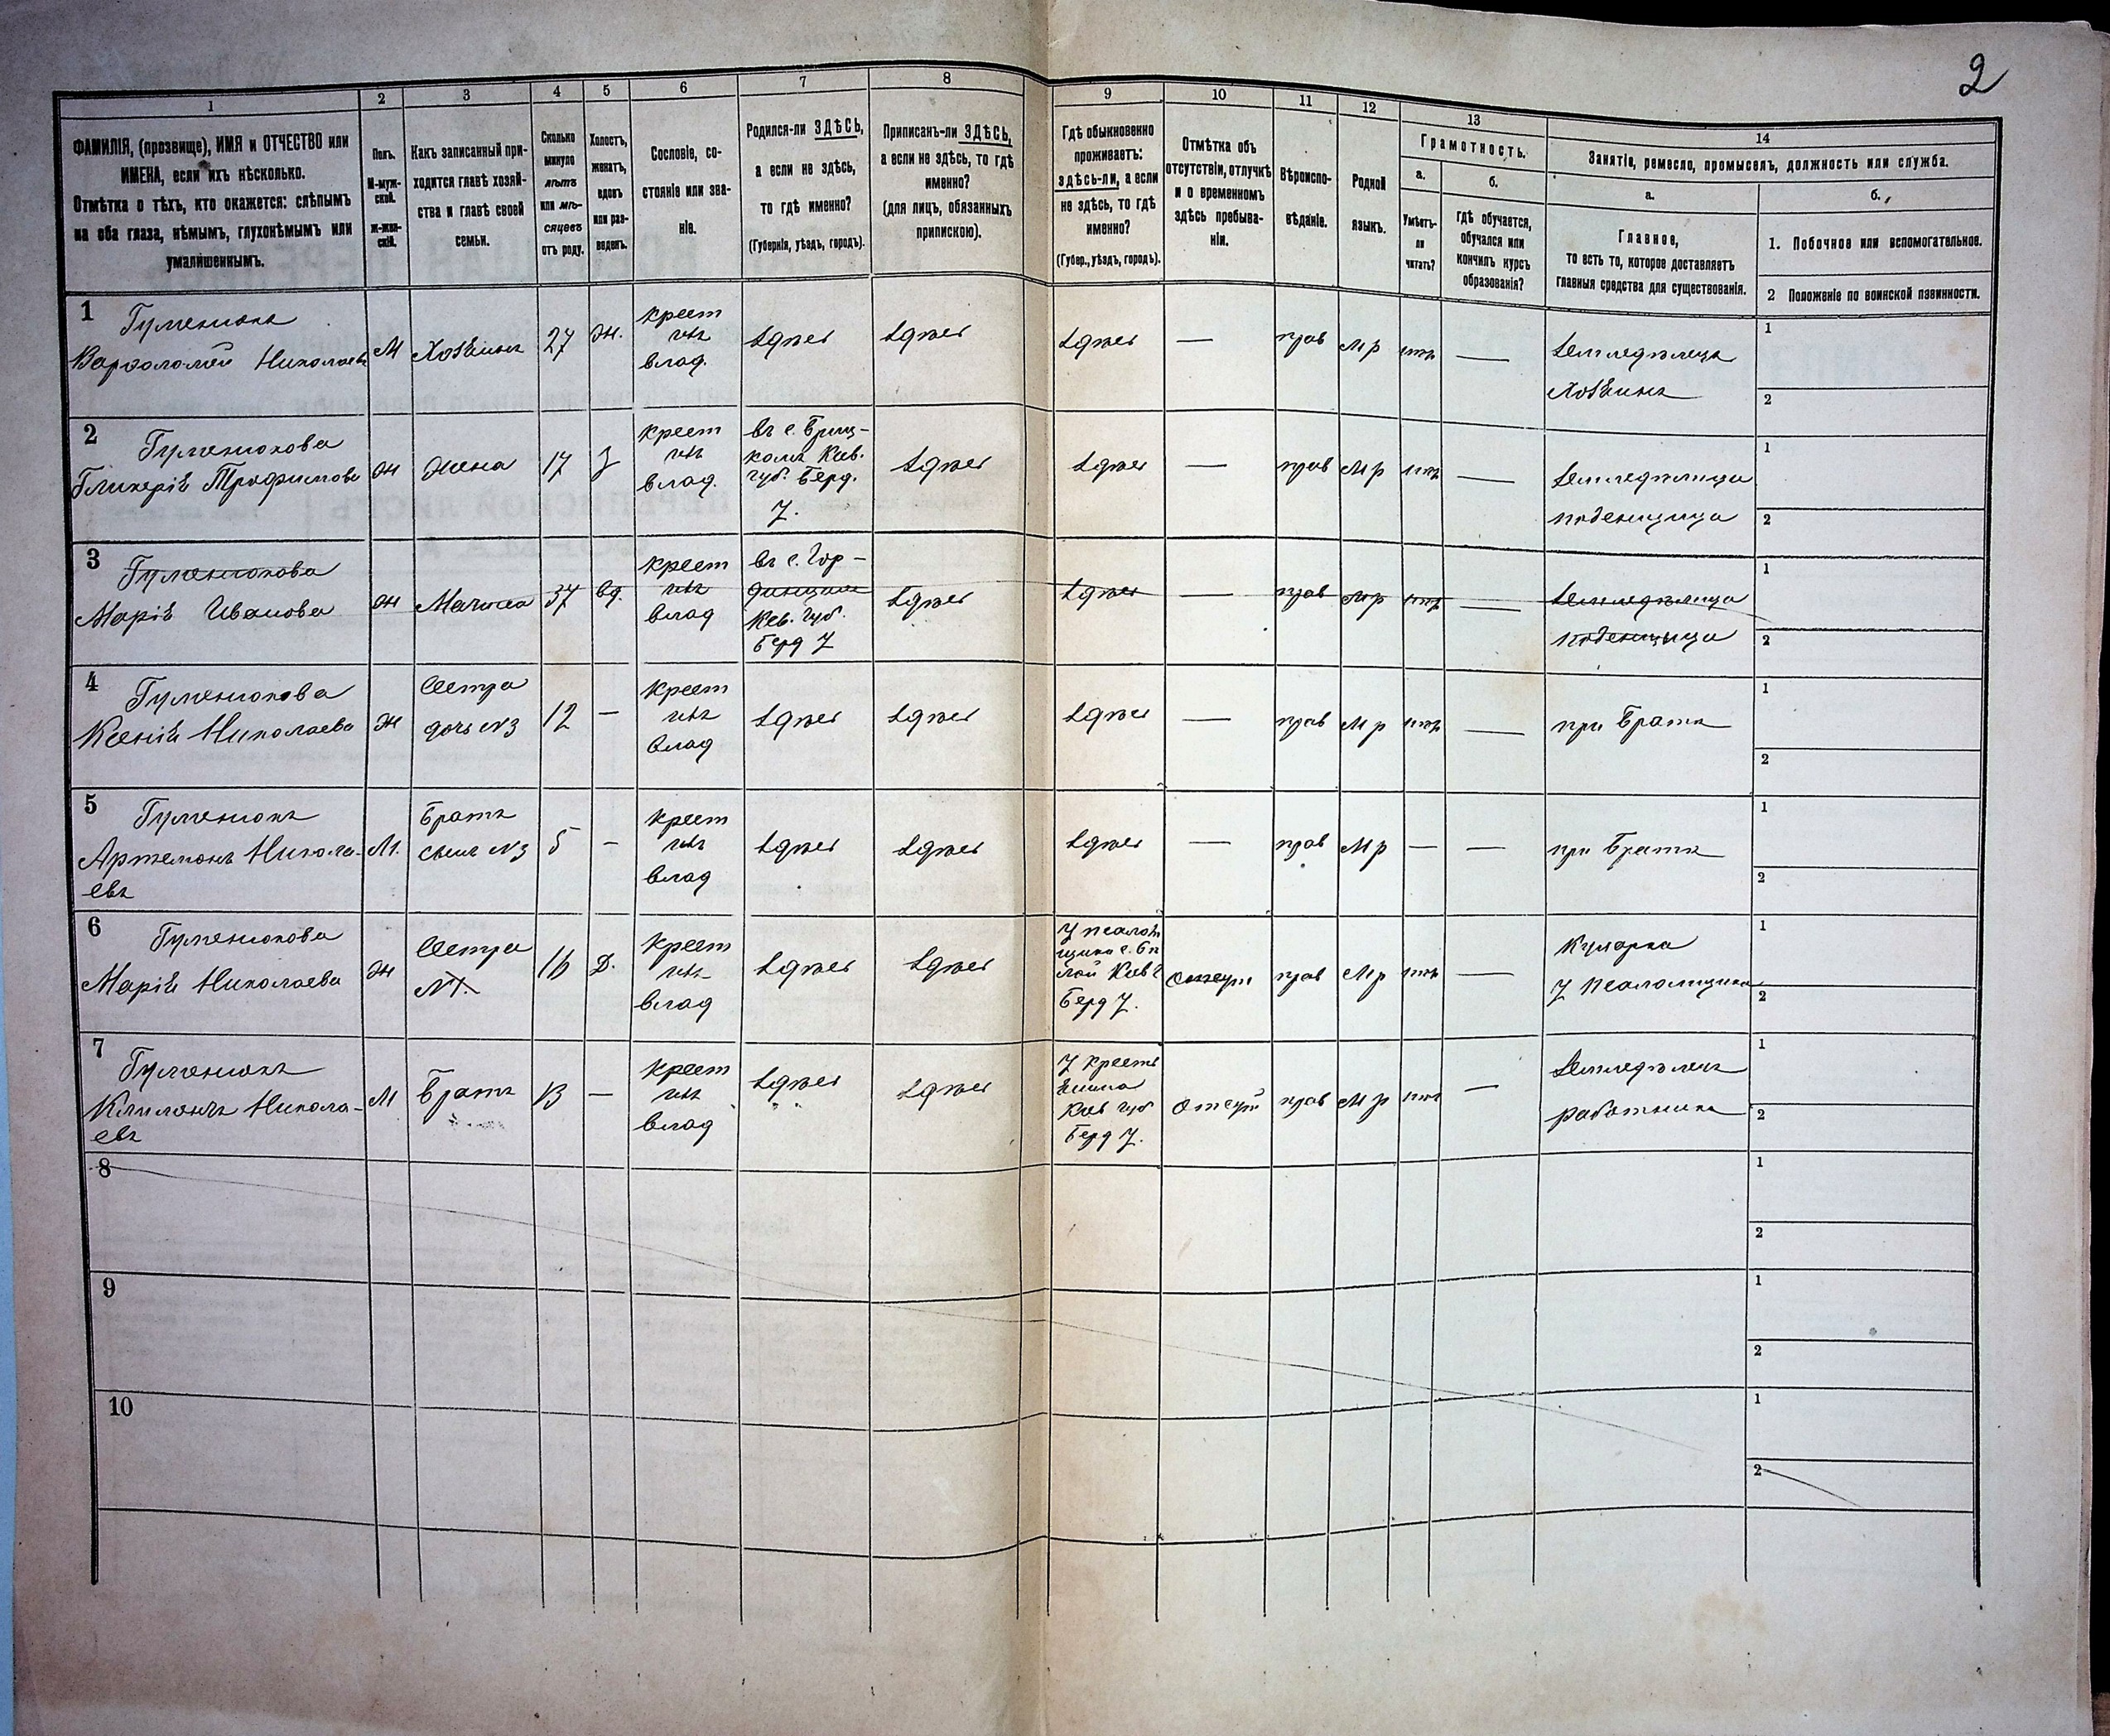 2
1
2
3
4
5
6
7
8
9
10
11
12
13
14
ФАМИЛІЯ, (прозвище), ИМЯ и ОТЧЕСТВО или
ИМЕНА, если ихъ нѣсколько.
Отмѣтка о тѣхъ, кто окажется: слѣпымъ
на оба глаза, нѣмымъ, глухонѣмымъ или
умалишеннымъ.
Полъ.
М-муж-
ской.
ж-жен-
скій.
Какъ записанный при-
ходится главѣ хозяй-
ства и главѣ своей
семьи.
Сколько
минуло
лѣтъ
или мѣ-
сяцевъ
отъ роду.
Холостъ,
женатъ,
вдовъ
или раз-
веденъ.
Сословіе, со-
стояніе или зва-
ніе.
Родился-ли ЗДѢСЬ,
а если не здѣсь,
то гдѣ именно?
(Губернія, уѣздъ, городъ).
Приписанъ-ли ЗДѢСЬ,
а если не здѣсь, то гдѣ
именно?
(для лицъ, обязанныхъ
припискою).
Гдѣ обыкновенно
проживаетъ:
здѣсь-ли, а если
не здѣсь, то гдѣ
именно?
(Губер., уѣздъ, городъ).
Отмѣтка объ
отсутствіи, отлучкѣ
и о временномъ
здѣсь пребыва-
ніи.
Вѣроиспо-
вѣданіе.
Родной
языкъ.
Грамотность.
а.
Умѣетъ-
ли
читать?
б.
гдѣ обучается,
обучался или
кончилъ курсъ
образованія?
Занятія, ремесло, промыселъ, должность или служба.
а.
Главное,
то есть то, которое доставляетъ
главныя средства для существованія.
б.
1. Побочное или вспомогательное.
2 Положеніе по воинской повинности.
1
Гуменюкъ
Варфоломей Николаевъ
М
Хозяинъ
27
ж.
крест
изъ
влад.
здѣсь
здѣсь
здѣсь
—
прав
Мр
нѣтъ
—
Земледѣлецъ
Хозяинъ
1
2
2
Гуменюкова
Гликерія Трофимова
ж
жена
17
З
крест
изъ
влад.
въ с.
Кіев.
губ. Берд.
У.
здѣсь
здѣсь
—
прав
Мр
нѣтъ
—
Земледѣлица
поденщица
1
2
3
Гуменюкова
Марія Иванова
ж
Мачиха
37
вд.
крест
изъ
влад
въ с.
Кіев. губ.
Берд У
здѣсь
здѣсь
—
прав
Мр
нѣтъ
—
Земледѣлица
поденщица
1
2
4
Гуменюкова
Ксенія Николаева
ж
Сестра
дочь N3
12
—
крест
изъ
влад
здѣсь
здѣсь
здѣсь
—
прав
Мр
нѣтъ
—
при братѣ
1
2
5
Гуменюкъ
Артемонъ Никола-
евъ
М.
Братъ
сынъ N3
5
—
крест
изъ
влад
здѣсь
здѣсь
здѣсь
—
прав
Мр
—
—
при братѣ
1
2
6
Гуменюкова
Марія Николаева
ж
Сестра
N1.
16
Д.
крест
изъ
влад
здѣсь
здѣсь
У псалом
щика с. Бѣ
лой Кіев г
Берд У.
Отсут
прав
Мр
нѣтъ
—
Кухарка
У псаломщика
1
2
7
Гуменюкъ
Климонъ Никола-
евъ
М
Братъ
13
—
крест
изъ
влад
здѣсь
здѣсь
У крестъ
янина
Кіев губ
Берд У.
Отсут
прав
Мр
нѣтъ
—
Земледѣлецъ
работникъ
1
2
8
1
2
9
1
2
10
1
2